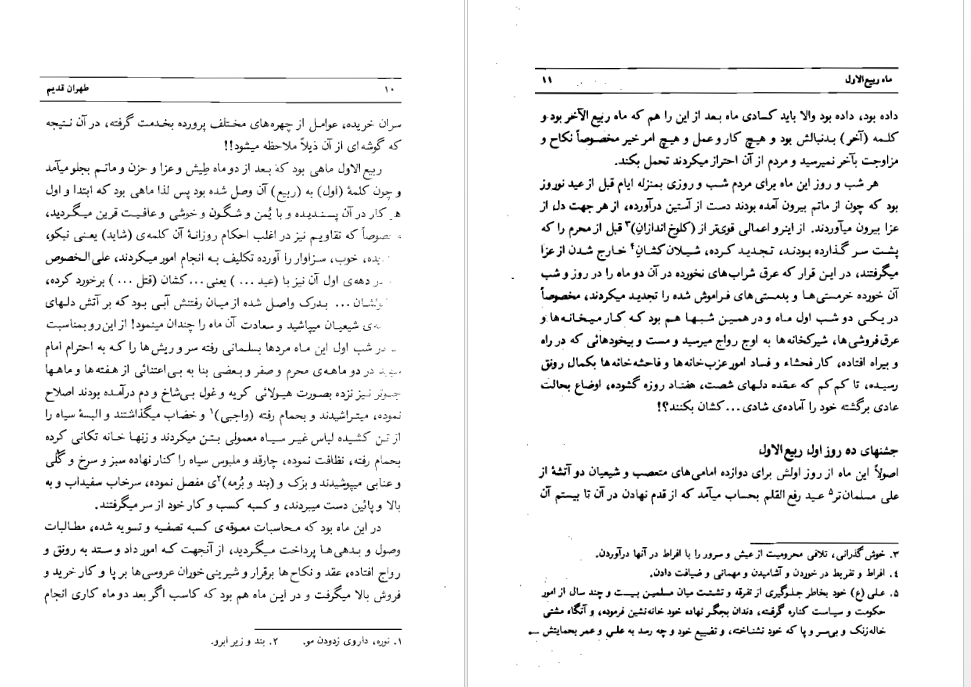 ۱۰ طهران قدیم
سران خریده، عوامل از چهره‌های مختلف پرورده بخدمت گرفته، در آن نتیجه
که گوشه‌ای از آن ذیلاً ملاحظه میشود!!
ربیع الاول ماهی بود که بعد از دو ماه طپش و عزا و حزن و ماتم بجلو میآمد
و چون کلمهٔ (اول) به (ربیع) آن وصل شده بود پس لذا ماهی بود که ابتدا و اول
هر کار در آن پسندیده و با یُمن و شگون و خوشی و عافیت قرین میگردید،
که تقاویم نیز در اغلب احکام روزانهٔ آن کلمه‌ی (شاید) یعنی نیکو،
خوب، سزاوار را آورده تکلیف به انجام امور میکردند، علی‌الخصوص
در دهه‌ی اول آن نیز با (عید ...) یعنی ...کشان (قتل ...) برخورد کرده،
... بدرک واصل شده از میان رفتنش آبی بود که بر آتش دلهای
شیعیان میپاشید و سعادت آن ماه را چندان مینمود! از این رو بمناسبت
در شب اول این ماه مردها بسلمانی رفته سر و ریش‌ها را که به احترام امام
در دو ماهه‌ی محرم و صفر و بعضی بنا به بی‌اعتنائی از هفته‌ها و ماهها
جلوتر نیز نزده بصورت هیولائی کریه و غول بی‌شاخ و دم درآمده بودند اصلاح
نموده، میتراشیدند و بحمام رفته (واجبی)۱ و خضاب میگذاشتند و البسهٔ سیاه را
از تن کشیده لباس غیر سیاه معمولی بتن میکردند و زنها خانه تکانی کرده
بحمام رفته، نظافت نموده، چارقد و ملبوس سیاه را کنار نهاده سبز و سرخ و گُلی
و عنابی میپوشیدند و بزک و (بند و بُرمه)۲ی مفصل نموده، سرخاب سفیداب و به
بالا و پائین دست میبردند، و کسبه کسب و کار خود از سر میگرفتند.
در این ماه بود که محاسبات معوقه‌ی کسبه تصفیه و تسویه شده، مطالبات
وصول و بدهی‌ها پرداخت میگردید، از آنجهت که امور داد و ستد به رونق و
رواج افتاده، عقد و نکاح‌ها برقرار و شیرینی خوران عروسی‌ها بر پا و کار خرید و
فروش بالا میگرفت و در این ماه هم بود که کاسب اگر بعد دو ماه کاری انجام
۱. نوره، داروی زدودن مو. ۲. بند و زیر ابرو.
ماه ربیع‌الاول ۱۱
داده بود، داده بود والا باید کسادی ماه بعد از این را هم که ماه ربیع الآخر بود و
کلمه (آخر) بدنبالش بود و هیچ کار و عمل و هیچ امر خیر مخصوصاً نکاح و
مزاوجت بآخر نمیرسید و مردم از آن احتراز میکردند تحمل بکند.
هر شب و روز این ماه برای مردم شب و روزی بمنزله ایام قبل از عید نوروز
بود که چون از ماتم بیرون آمده بودند دست از آستین درآورده، از هر جهت دل از
عزا بیرون میآوردند. از اینرو اعمالی قوی‌تر از (کلوخ اندازان)۳ قبل از محرم را که
پشت سر گذارده بودند، تجدید کرده، شیلان کشان۴ خارج شدن از عزا
میگرفتند، در این قرار که عرق شراب‌های نخورده در آن دو ماه را در روز و شب
آن خورده خرمستی‌ها و بدمستی‌های فراموش شده را تجدید میکردند، مخصوصاً
در یکی دو شب اول ماه و در همین شبها هم بود که کار میخانه‌ها و
عرق‌فروشی‌ها، شیرکخانه‌ها به اوج رواج میرسید و مست و بیخودهائی که در راه
و بیراه افتاده، کار فحشاء و فساد امور عزب‌خانه‌ها و فاحشه‌خانه‌ها بکمال رونق
رسیده، تا کم کم که عقده دلهای شصت، هفتاد روزه گشوده، اوضاع بحالت
عادی برگشته خود را آماده‌ی شادی...کشان بکنند؟!
جشنهای ده روز اول ربیع‌الاول
اصولاً این ماه از روز اولش برای دوازده امامی‌های متعصب و شیعیان دو آتشهٔ از
علی مسلمان‌تر۵ عید رفع القلم بحساب میآمد که از قدم نهادن در آن تا بیستم آن
۳. خوش گذرانی، تلافی محرومیت از عیش و سرور را با افراط در آنها درآوردن.
۴. افراط و تفریط در خوردن و آشامیدن و مهمانی و ضیافت دادن.
۵. علی (ع) خود بخاطر جلوگیری از تفرقه و تشتت میان مسلمین بیست و چند سال از امور
حکومت و سیاست کناره گرفته، دندان بجگر نهاده خود خانه‌نشین فرموده، و آنگاه مشتی
خاله‌زنک و بی‌سر و پا که خود نشناخته، و تضییع خود و چه رسد به علی و عمر بحمایتش ←